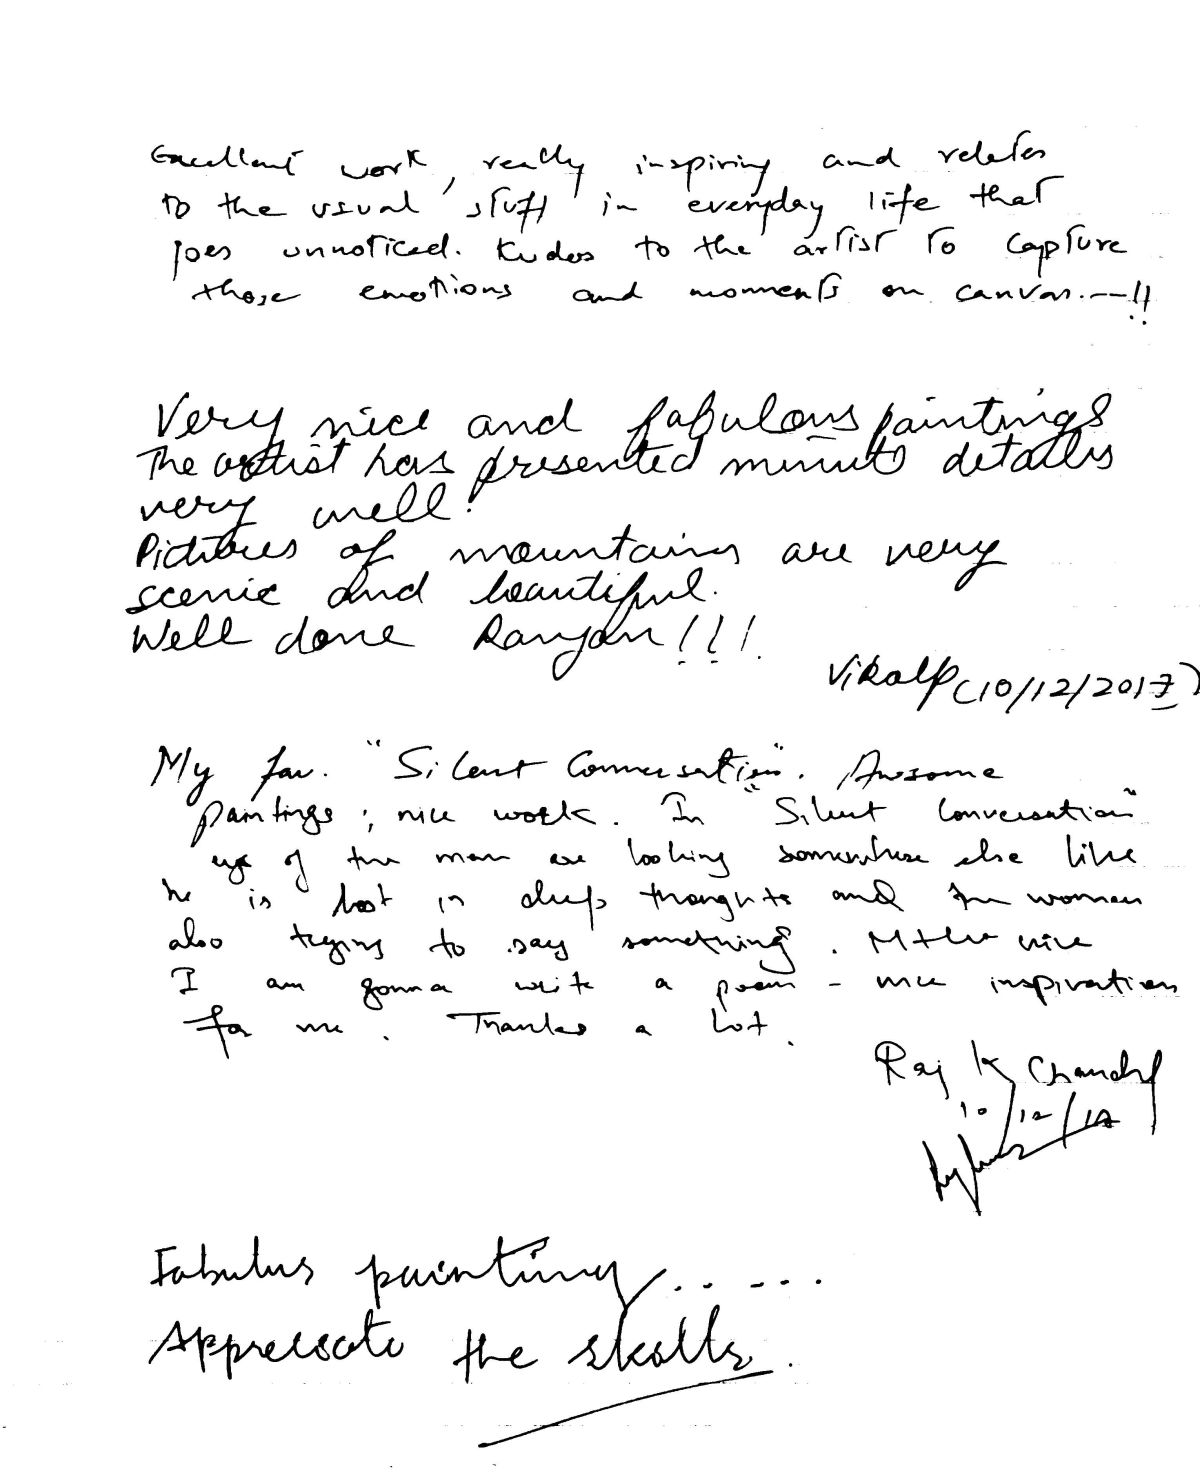 Excellent work, really inspiring and relates
to the usual stuff in everyday life that
goes unnoticed. Kudos to the artist to capture
those emotions and moments on canvas.--!!
Very nice and fabulous paintings
The artist has presented minute details
very well.
Pictures of mountains are very
scenic and beautiful.
Well done Ranjan!!!
(10/12/2017)
My fav. "Silent Conversation". Awsome
paintings; nice work. In "Silent Conversation"
eye of the man are looking somewhere else like
he is lost in deep thoughts and the women
also trying to say something. nice
I am gonna write a poem - nice inspiration
for me. Thanks a lot.
Raj K
10/12/17
Fabulus painting......
Appreciate the skills.